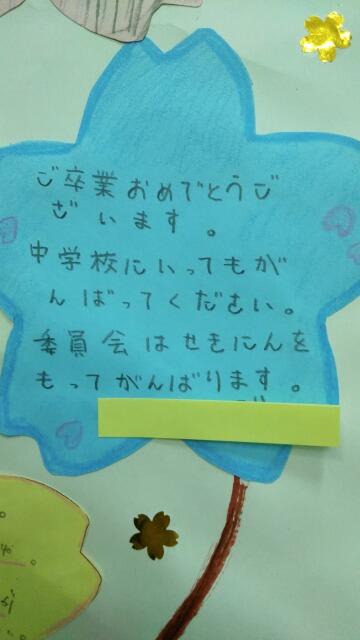 ご卒業おめでとうご
ざいます。
中学校にいってもが
んばってください。
委員会はせきにんを
もってがんばります。